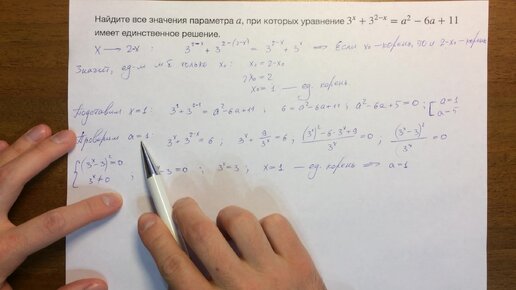 Найдите все значения параметра a, при которых уравнение 3^x + 3^{2−x} = a² − 6a + 11
имеет единственное решение.
x → 2-x : 3^{2-x} + 3^{2-(2-x)} = 3^{2-x} + 3^x ⇒ Если x₀ - корень, то и 2-x₀ - корень
Значит, ед-м м.б. только x₀: x₀ = 2-x₀
2x₀ = 2
x₀ = 1 — ед. корень
Подставим x=1: 3^1 + 3^{2-1} = a²-6a+11 ; 6 = a²-6a+11 ; a²-6a+5=0 ; [a=1
a=5
Проверим a=1: 3^x + 3^{2-x} = 6 ; 3^x + 9/3^x = 6 ; ((3^x)² - 6·3^x + 9)/3^x = 0 ; (3^x-3)²/3^x = 0
{(3^x-3)²=0
3^x≠0 ; -3=0 ; 3^x=3 ; x=1 — ед. корень ⇒ a=1